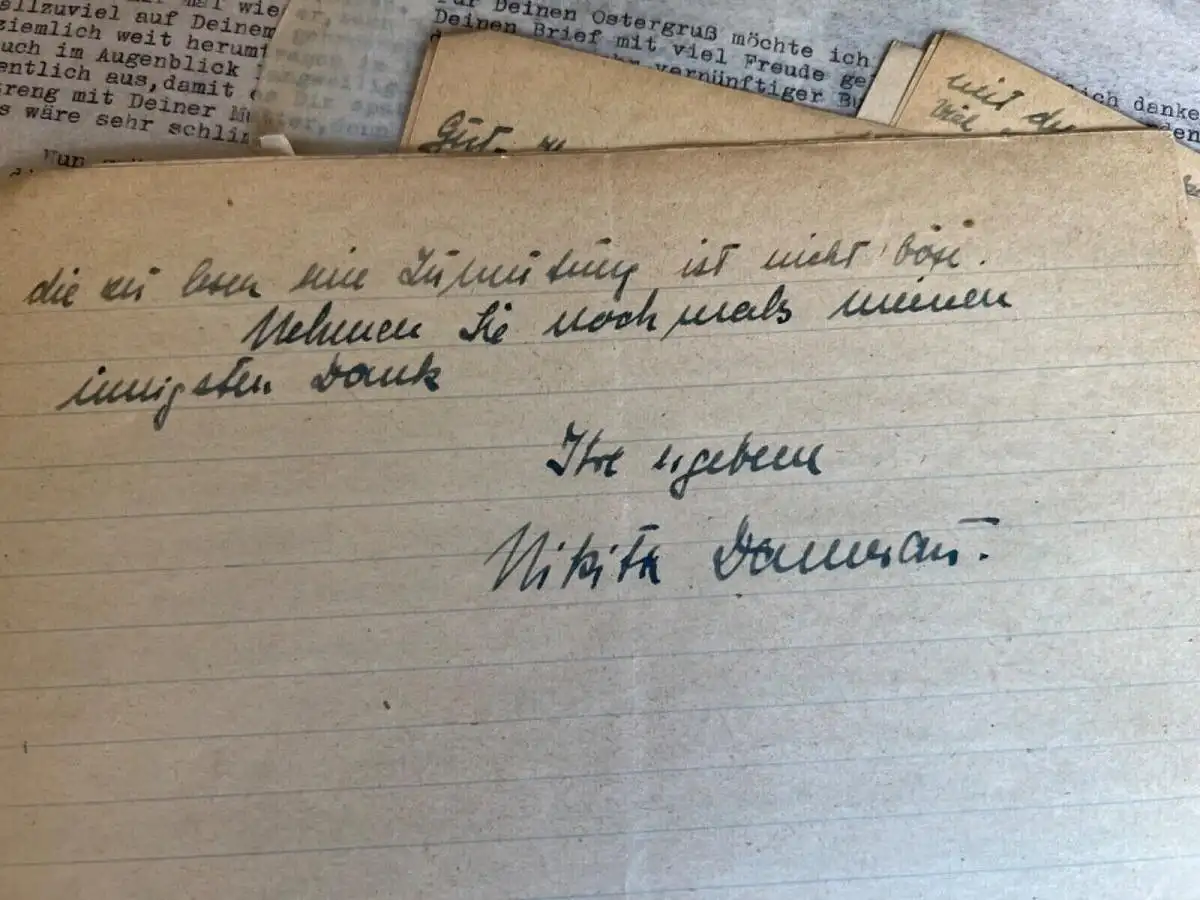 mal wie
llzuviel auf Deinem
ziemlich weit herumt
uch im Augenblick
entlich aus,damit
treng mit Deiner Mu
s wäre sehr schlim
Nun
für Deinen Ostergruß möchte ich
Deinen Brief mit viel Freude ge
vernünftiger Bu
ich danke
den
Gut
mit
die zu lesen eine Zumutung ist nicht böse.
Nehmen Sie nochmals meinen
innigsten Dank
Ihre ergebene
Nikita Damerau.